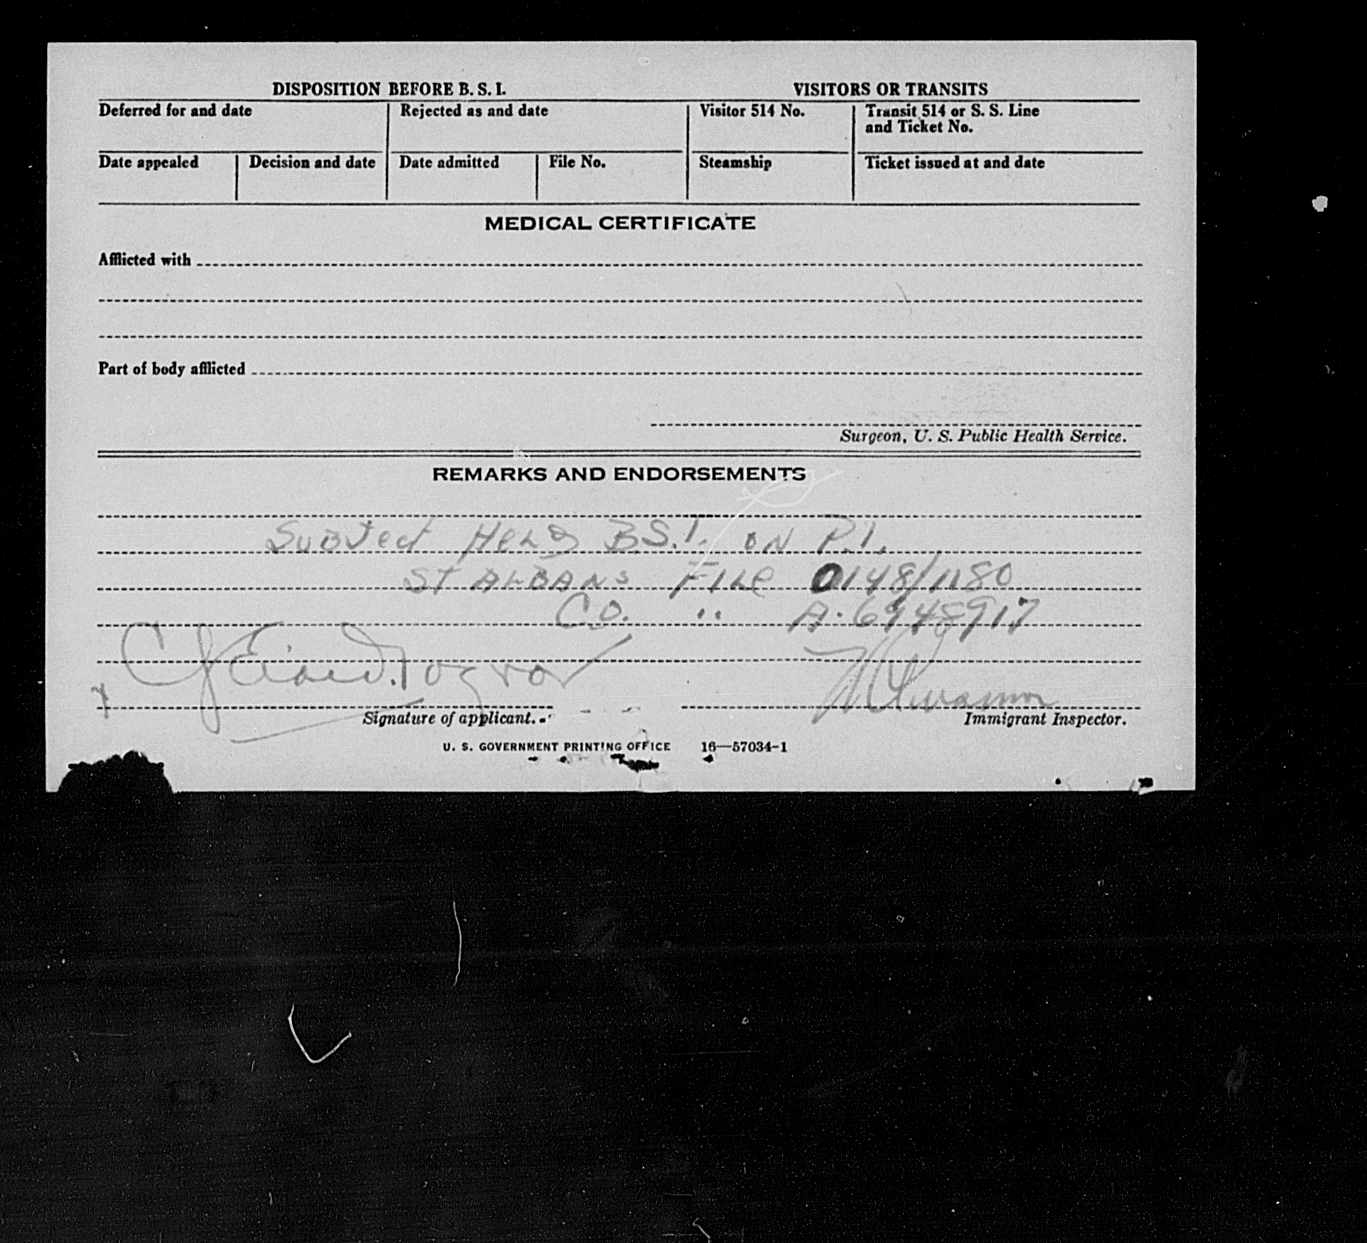 DISPOSITION BEFORE B. S. I.
VISITORS OR TRANSITS
Deferred for and date
Rejected as and date
Visitor 514 No.
Transit 514 or S. S. Line
and Ticket No.
Date appealed
Decision and date
Date admitted
File No.
Steamship
Ticket issued at and date
MEDICAL CERTIFICATE
Afflicted with
Part of body afflicted
Surgeon, U. S. Public Health Service.
REMARKS AND ENDORSEMENTS
SUBJECT HELD B.S.I. ON P.I.
ST ALBANS FILE 0148/1180
CO. " A-6948917
Signature of applicant.
Immigrant Inspector.
U. S. GOVERNMENT PRINTING OFFICE 16—57034-1